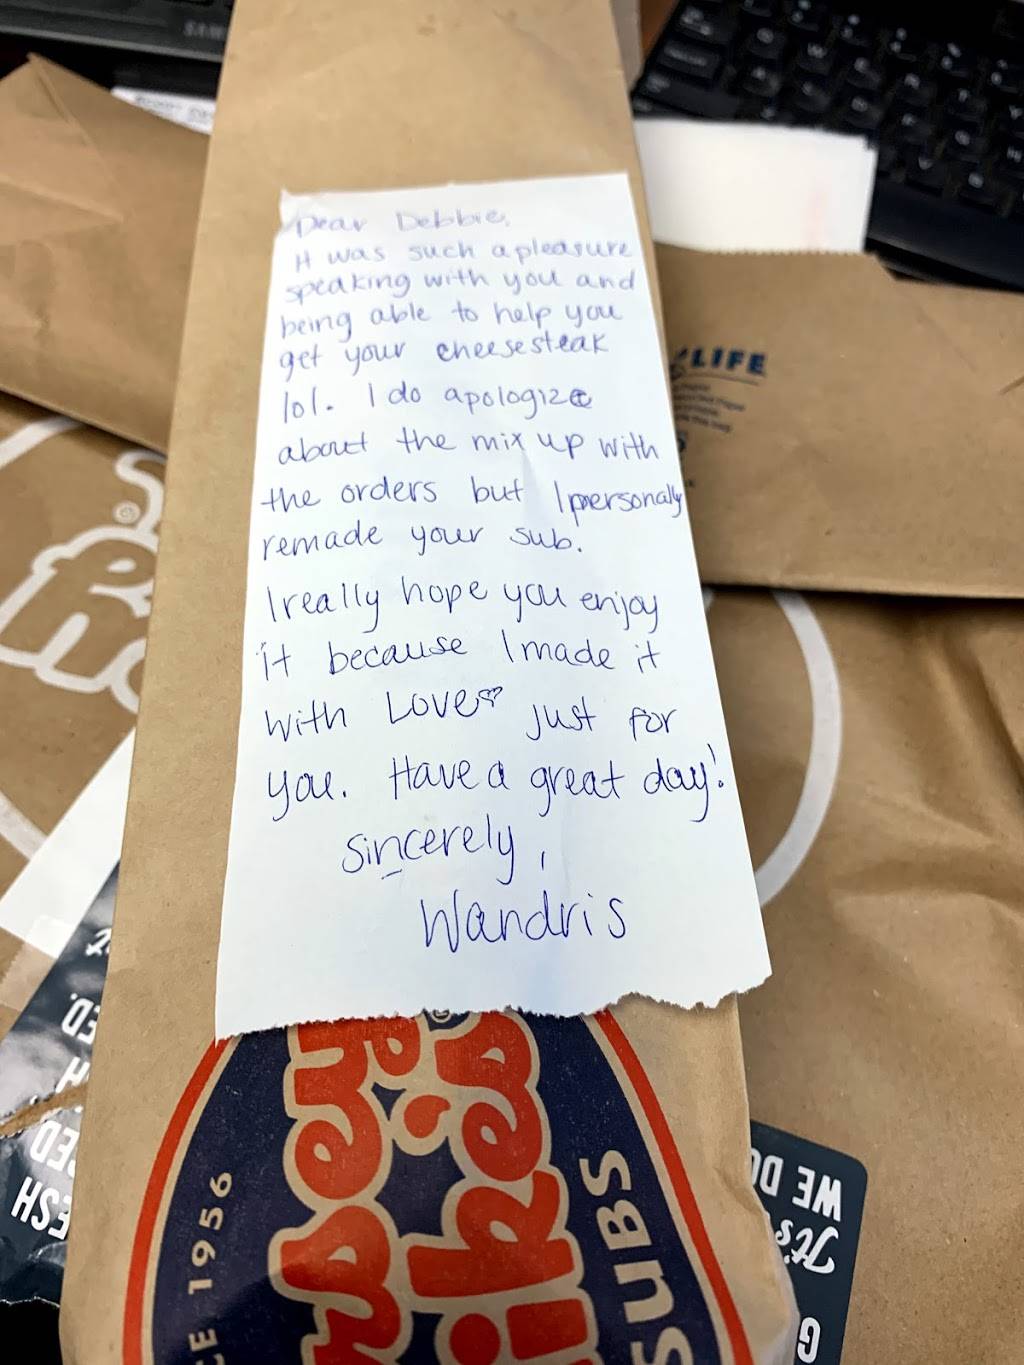 SAMS
Dear Debbie,
It was such a pleasure
speaking with you and
being able to help you
get your cheesesteak
lol. I do apologize
about the mix up with
the orders but I personally
remade your sub.
I really hope you enjoy
it because I made it
with Love♡ just for
you. Have a great day!
Sincerely,
Wandris
LIFE
Jersey
Mike's
SUBS
CE 1956
WE DO
It's
G
ESH
ED
H
ED.